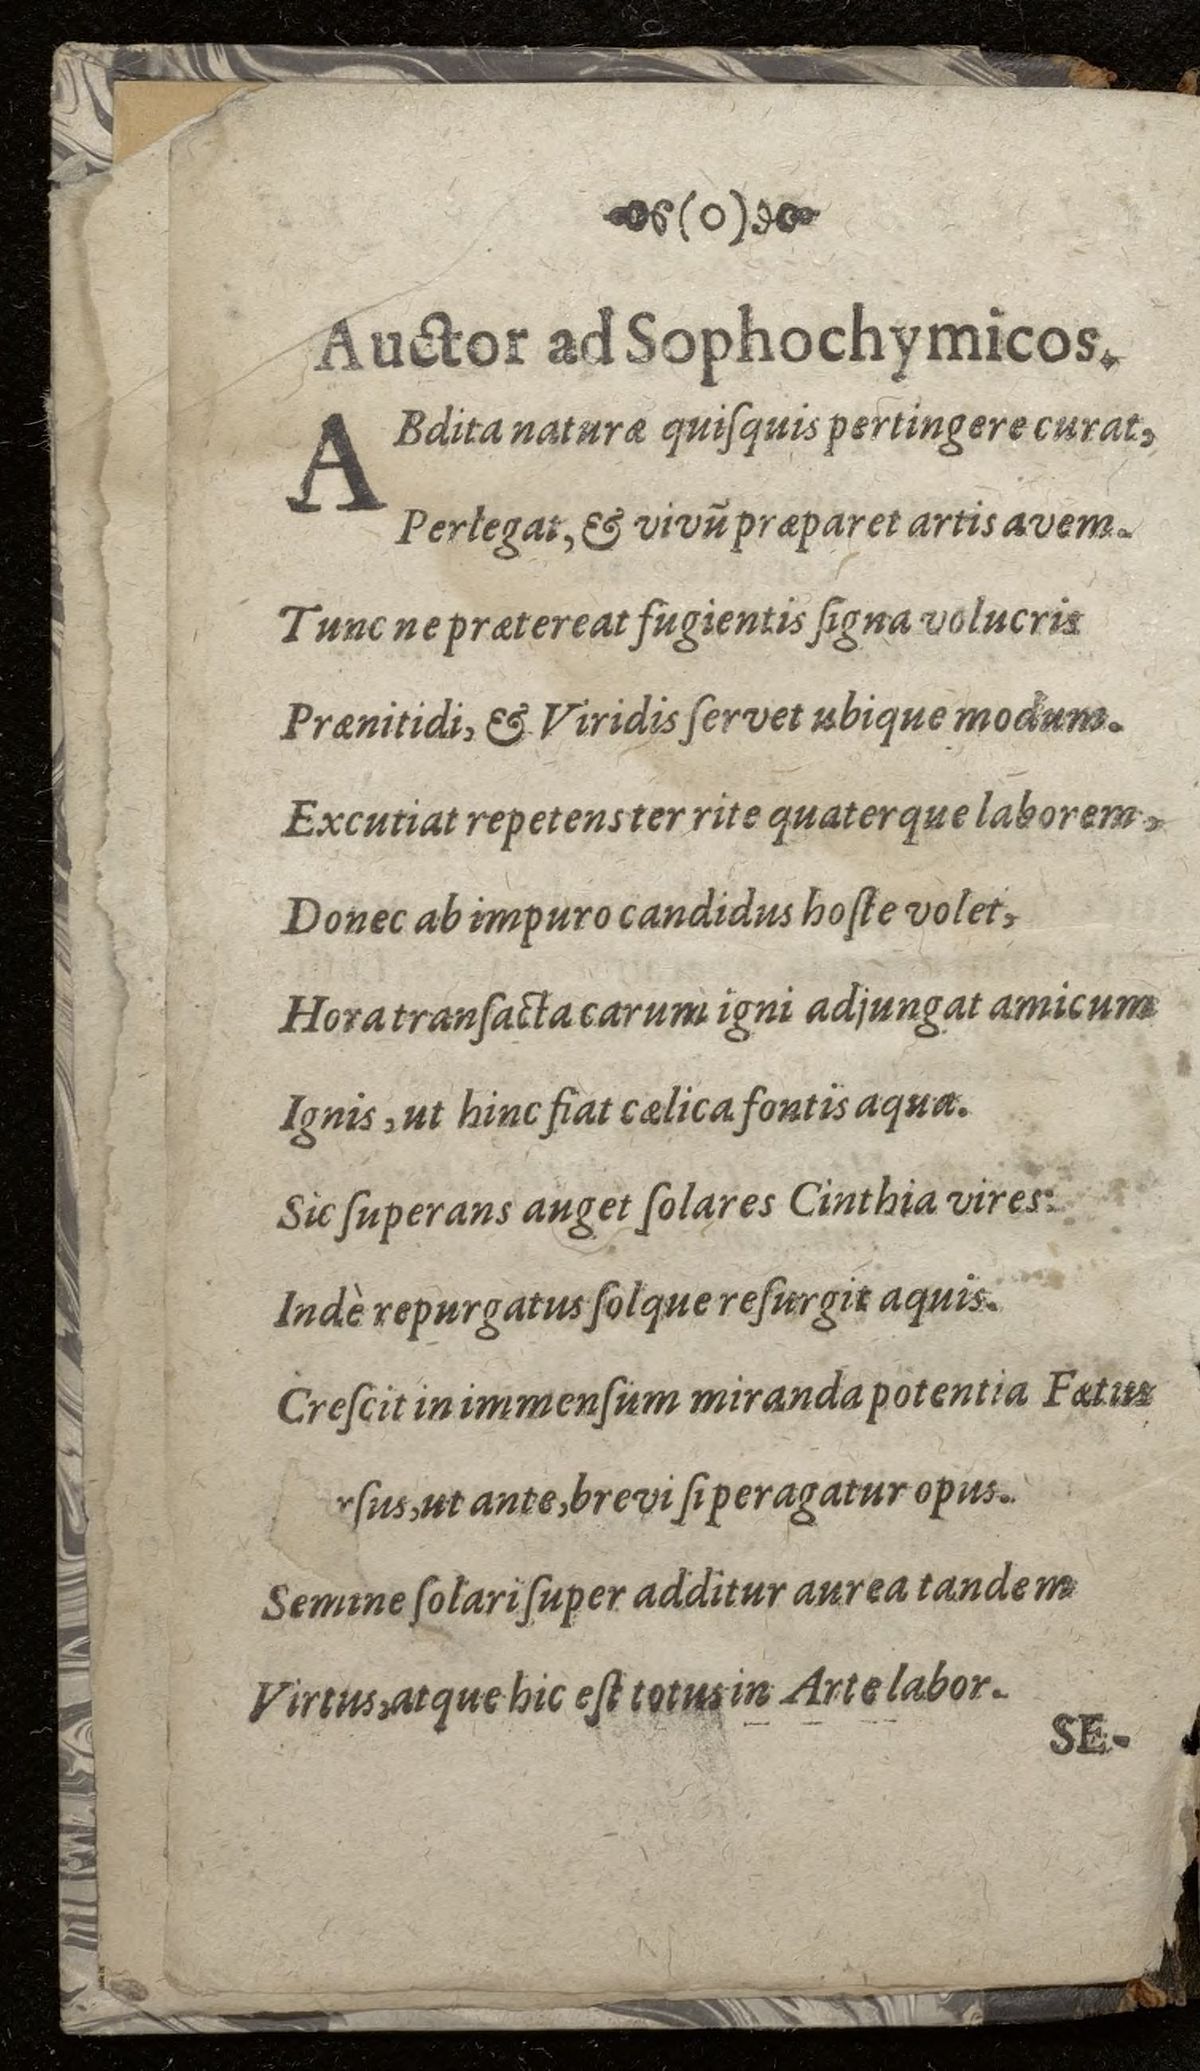 (o)
Auctor ad Sophochymicos.
ABdita naturæ quiſquis pertingere curat,
Perlegat, & vivũ præparet artis avem.
Tunc ne prætereat fugientis ſigna volucris
Prænitidi, & Viridis ſervet ubique modum.
Excutiat repetens ter rite quaterque laborem,
Donec ab impuro candidus hoſte volet,
Hora tranſacta carum igni adjungat amicum
Ignis, ut hinc fiat cælica fontis aqua.
Sic ſuperans auget ſolares Cinthia vires:
Indè repurgatus ſolque reſurgit aquis.
Creſcit in immenſum miranda potentia Fætus
rſus, ut ante, brevi ſi peragatur opus.
Semine ſolari ſuper additur aurea tandem
Virtus, atque hic eſt totus in Arte labor.
SE-